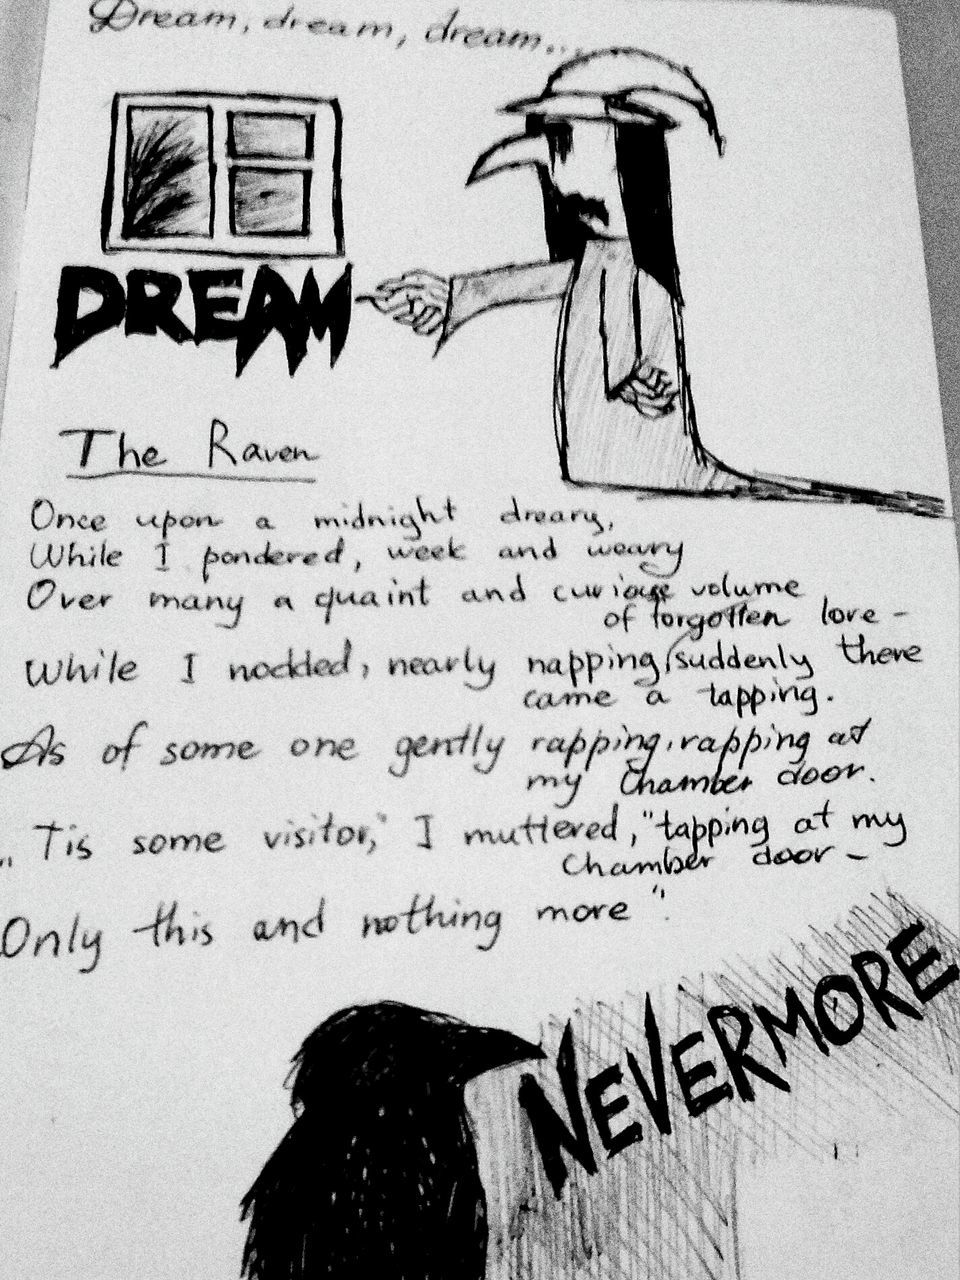 Dream, dream, dream...
DREAM
The Raven
Once upon a midnight dreary,
While I pondered, week and weary
Over many a quaint and curiouse volume
of forgotten love -
While I nodded, nearly napping, suddenly there
came a tapping.
As of some one gently rapping, rapping at
my chamber door.
„Tis some visitor," I muttered, "tapping at my
chamber door -
Only this and nothing more".
NEVERMORE